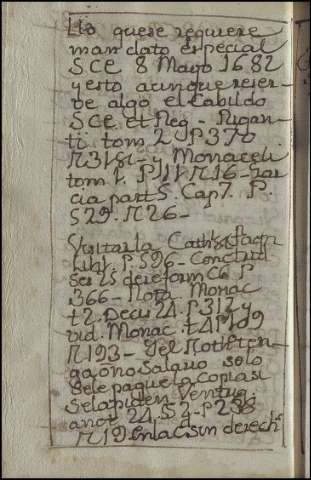 llo quese requiere
mandato especial
SCE 8 Mayo 1682
y esto aunque reser-
be algo el Cabildo
SCE et Reg - Pignan-
ti tom 2 P 370
N 3181 - y Monaceli
tom 1. P 11 N 16 - Gar
cia part 5 Cap 7. P.
529. N 26 -
Visitar la Cath
P. 596 - Concil trid
Ses 25 de reform C6 P
366 - Nota Monac
t 2. Decis 24. P 312 y
vid. Monac. t 4 P 109
N 193 - Gel Not ten
ga o no Salario solo
sele pague la Copia si
sela piden Ventrig
anot 24. § 2 - P 238
N 19. en la C sin derech